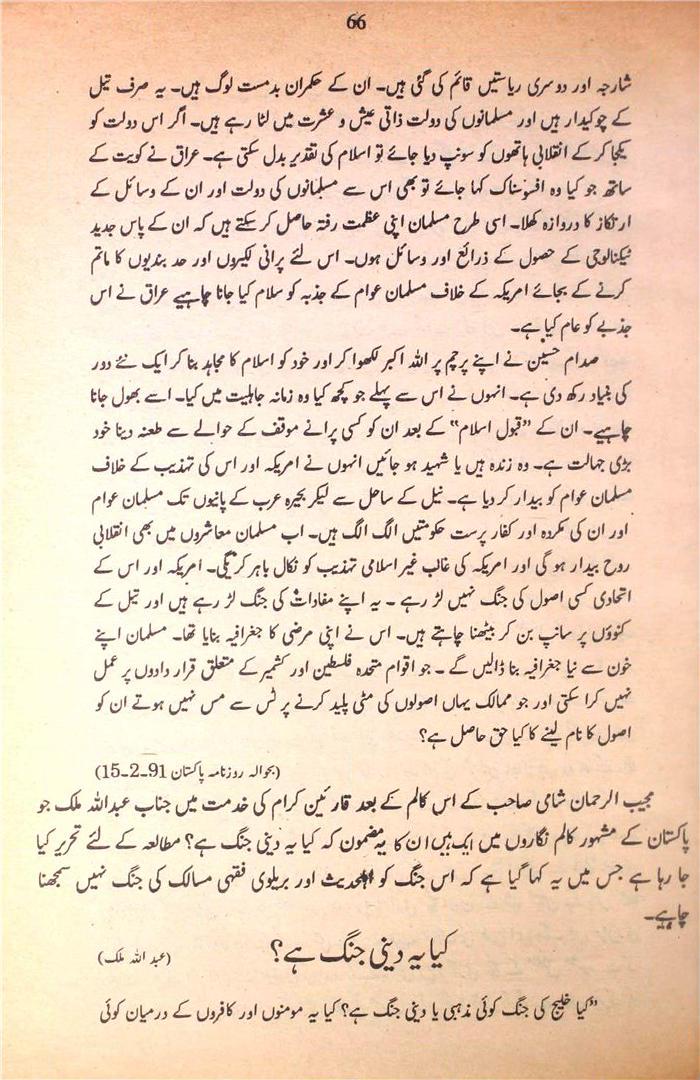 66
شارجہ اور دوسری ریاستیں قائم کی گئی ہیں۔ ان کے حکمران بدمست لوگ ہیں۔ یہ صرف تیل
کے چوکیدار ہیں اور مسلمانوں کی دولت ذاتی عیش و عشرت میں لٹا رہے ہیں۔ اگر اس دولت کو
یکجا کر کے انقلابی ہاتھوں کو سونپ دیا جائے تو اسلام کی تقدیر بدل سکتی ہے۔ عراق نے کویت کے
ساتھ جو کیا وہ افسوسناک کہا جائے تو بھی اس سے مسلمانوں کی دولت اور ان کے وسائل کے
ارتکاز کا دروازہ کھلا۔ اسی طرح مسلمان اپنی عظمت رفتہ حاصل کر سکتے ہیں کہ ان کے پاس جدید
ٹیکنالوجی کے حصول کے ذرائع اور وسائل ہوں۔ اس لئے پرانی لکیروں اور حد بندیوں کا ماتم
کرنے کے بجائے امریکہ کے خلاف مسلمان عوام کے جذبہ کو سلام کیا جانا چاہیے عراق نے اس
جذبے کو عام کیا ہے۔
صدام حسین نے اپنے پرچم پر اللہ اکبر لکھوا کر اور خود کو اسلام کا مجاہد بنا کر ایک نئے دور
کی بنیاد رکھ دی ہے۔ انہوں نے اس سے پہلے جو کچھ کیا وہ زمانہ جاہلیت میں کیا۔ اسے بھول جانا
چاہیے۔ ان کے ”قبول اسلام“ کے بعد ان کو کسی پرانے موقف کے حوالے سے طعنہ دینا خود
بڑی جہالت ہے۔ وہ زندہ ہیں یا شہید ہو جائیں انہوں نے امریکہ اور اس کی تہذیب کے خلاف
مسلمان عوام کو بیدار کر دیا ہے۔ نیل کے ساحل سے لیکر بحیرہ عرب کے پانیوں تک مسلمان عوام
اور ان کی مکروہ اور کفار پرست حکومتیں الگ الگ ہیں۔ اب مسلمان معاشروں میں بھی انقلابی
روح بیدار ہو گی اور امریکہ کی غالب غیر اسلامی تہذیب کو نکال باہر کریگی۔ امریکہ اور اس کے
اتحادی کسی اصول کی جنگ نہیں لڑ رہے ۔ یہ اپنے مفادات کی جنگ لڑ رہے ہیں اور تیل کے
کنوؤں پر سانپ بن کر بیٹھنا چاہتے ہیں۔ اس نے اپنی مرضی کا جغرافیہ بنایا تھا۔ مسلمان اپنے
خون سے نیا جغرافیہ بنا ڈالیں گے ۔ جو اقوام متحدہ فلسطین اور کشمیر کے متعلق قرار دادوں پر عمل
نہیں کرا سکتی اور جو ممالک یہاں اصولوں کی مٹی پلید کرنے پر ٹس سے مس نہیں ہوتے ان کو
اصول کا نام لینے کا کیا حق حاصل ہے؟
(بحوالہ روزنامہ پاکستان 91-2-15)
مجیب الرحمان شامی صاحب کے اس کالم کے بعد قارئین کرام کی خدمت میں جناب عبداللہ ملک جو
پاکستان کے مشہور کالم نگاروں میں ایک ہیں ان کا یہ مضمون کہ کیا یہ دینی جنگ ہے؟ مطالعہ کے لئے تحریر کیا
جا رہا ہے جس میں یہ کہا گیا ہے کہ اس جنگ کو اہلحدیث اور بریلوی فقہی مسالک کی جنگ نہیں سمجھنا
چاہیے۔
کیا یہ دینی جنگ ہے؟ (عبد اللہ ملک)
”کیا خلیج کی جنگ کوئی مذہبی یا دینی جنگ ہے؟ کیا یہ مومنوں اور کافروں کے درمیان کوئی